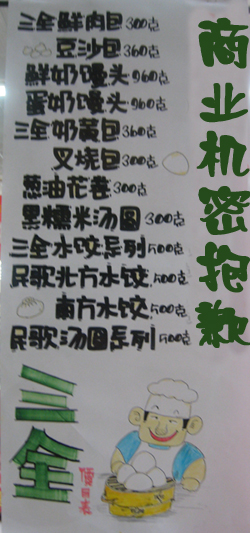 三全鲜肉包300克
豆沙包360克
鲜奶馒头960克
蛋奶馒头960克
三全奶黄包360克
叉烧包300克
葱油花卷300克
黑糯米汤圆300克
三全水饺系列500克
民歌北方水饺500克
南方水饺500克
民歌汤圆系列500克
商业机密抱歉
三全